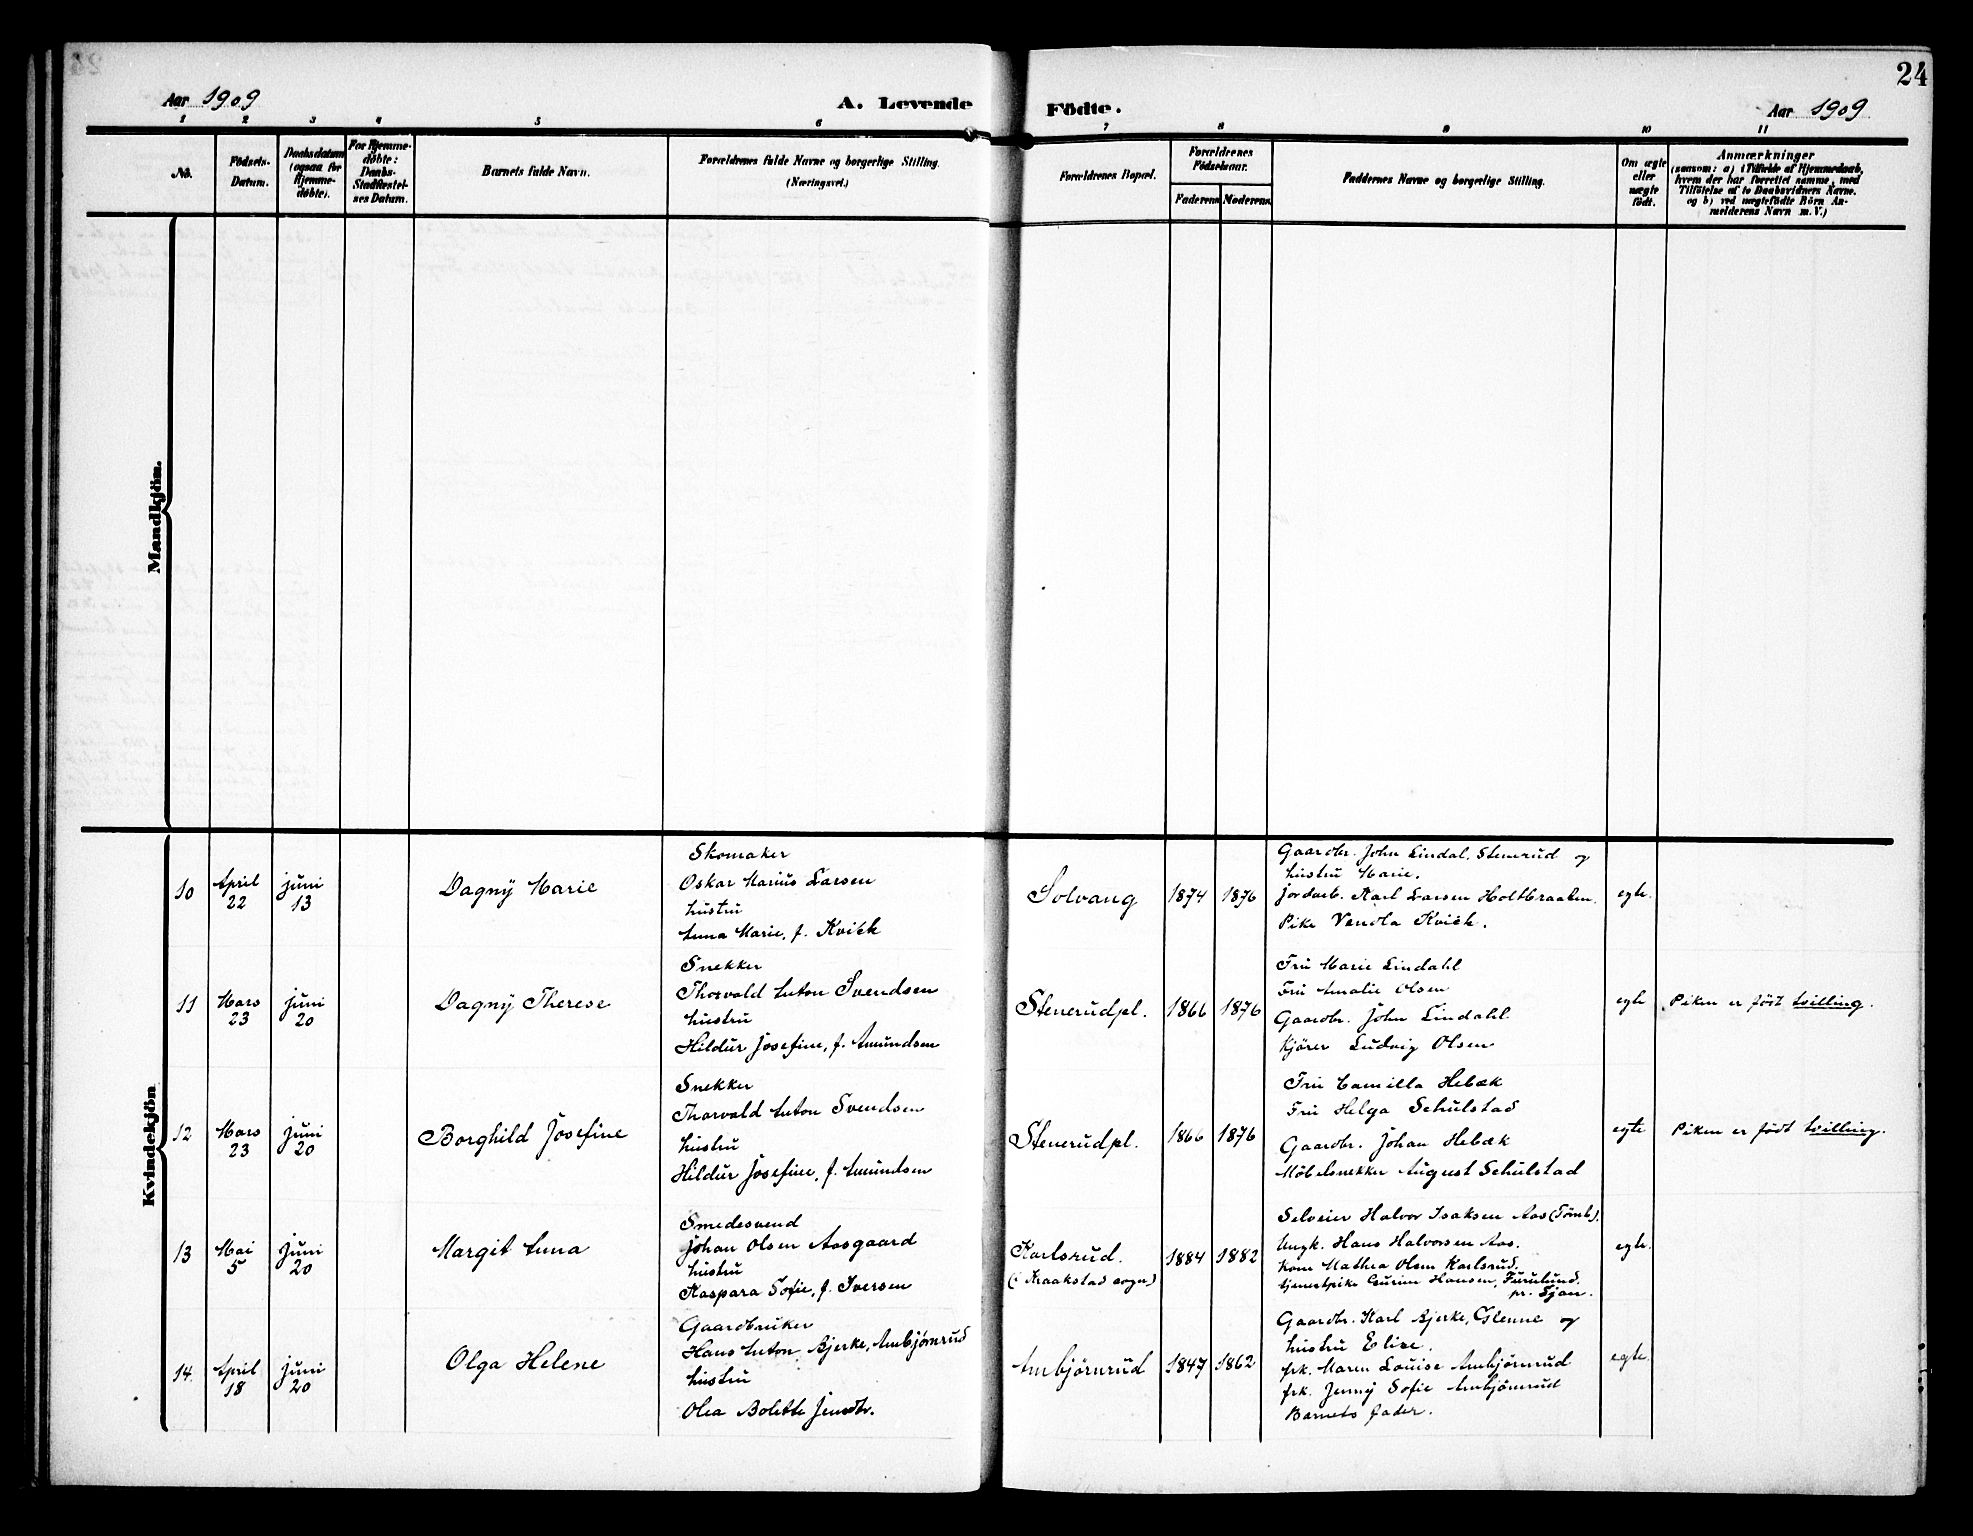 24
Aar 1909
A. Levende
Födte.
Aar 1909
1 2 3 4 5 6 7 8 9 10 11
No.
Födsels-
Datum.
Daabsdatum
(ogsaa for
Hjemme-
döbte).
For Hjemme-
döbte:
Daabs-
Stadfæstel-
ses Datum.
Barnets fulde Navn.
Forældrenes fulde Navne og borgerlige Stilling.
(Næringsvei.)
Forældrenes Bopæl.
Forældrenes
Födselsaar.
Faderens
Moderens
Faddernes Navne og borgerlige Stilling.
Om ægte
eller
uægte
födt.
Anmærkninger
(saasom: a) i Tilfælde af Hjemmedaab,
hvem der har forrettet samme, med
Tilföielse af to Daabsvidners Navne.
og b) ved uægtefödte Börn An-
melderens Navn m.V.)
Mandkjön.
Kvindekjön
10
April
22
juni
13
Dagny Marie
Skomaker
Oskar Marius Larsen
hustru
Anna Marie, f. Kvick
Solvang
1874
1876
Gaardbr. John Lindal, Stenerud og
hustru Marie.
jordarb. Karl Larsen Holtbraaten.
Pike Vanda Kvick.
egte.
11
Mars
23
juni
20
Dagny Therese
Snekker
Thorvald Anton Svendsen
hustru
Hildur Josefine, f. Amundsen
Stenerudpl.
1866
1876
Fru Marie Lindahl
Fru Amalie Olsen
Gaardbr. John Lindahl.
Kjörer Ludvig Olsen
egte
Piken er födt tvilling.
12
Mars
23
juni
20
Borghild Josefine
Snekker
Thorvald Anton Svendsen
hustru
Hildur Josefine, f. Amundsen
Stenerudpl.
1866
1876
Fru Camilla Hebæk
Fru Helga Schulstad
Gaardbr. Johan Hebæk
Möbelsnekker August Schulstad
egte
Piken er födt tvilling.
13
Mai
5
Juni
20
Margit Anna
Smedesvend
Johan Olsen Aasgaard
hustru
Kaspara Sofie, f. Iversen
Karlsrud.
(i Kraakstad sogn)
1884
1882
Selveier Halvor Isaksen Aas (Tomb).
Ungk. Hans Halvorsen Aas.
Kone Mathea Olsen Karlsrud.
tjenestpike Hansen, Furulund.
pr. Ljan.
egte.
14.
April
18
juni
20
Olga Helene
Gaardbruker
Hans Anton Bjerke, Ambjörnrud
hustru
Olea Bolette Jensdtr.
Ambjörnrud
1847
1862
Gaardbr. Karl Bjerke, Glenne og
hustru Elise.
frk. Maren Louise Ambjörnrud
frk. Jenny Sofie Ambjörnrud
Barnets fader.
egte.